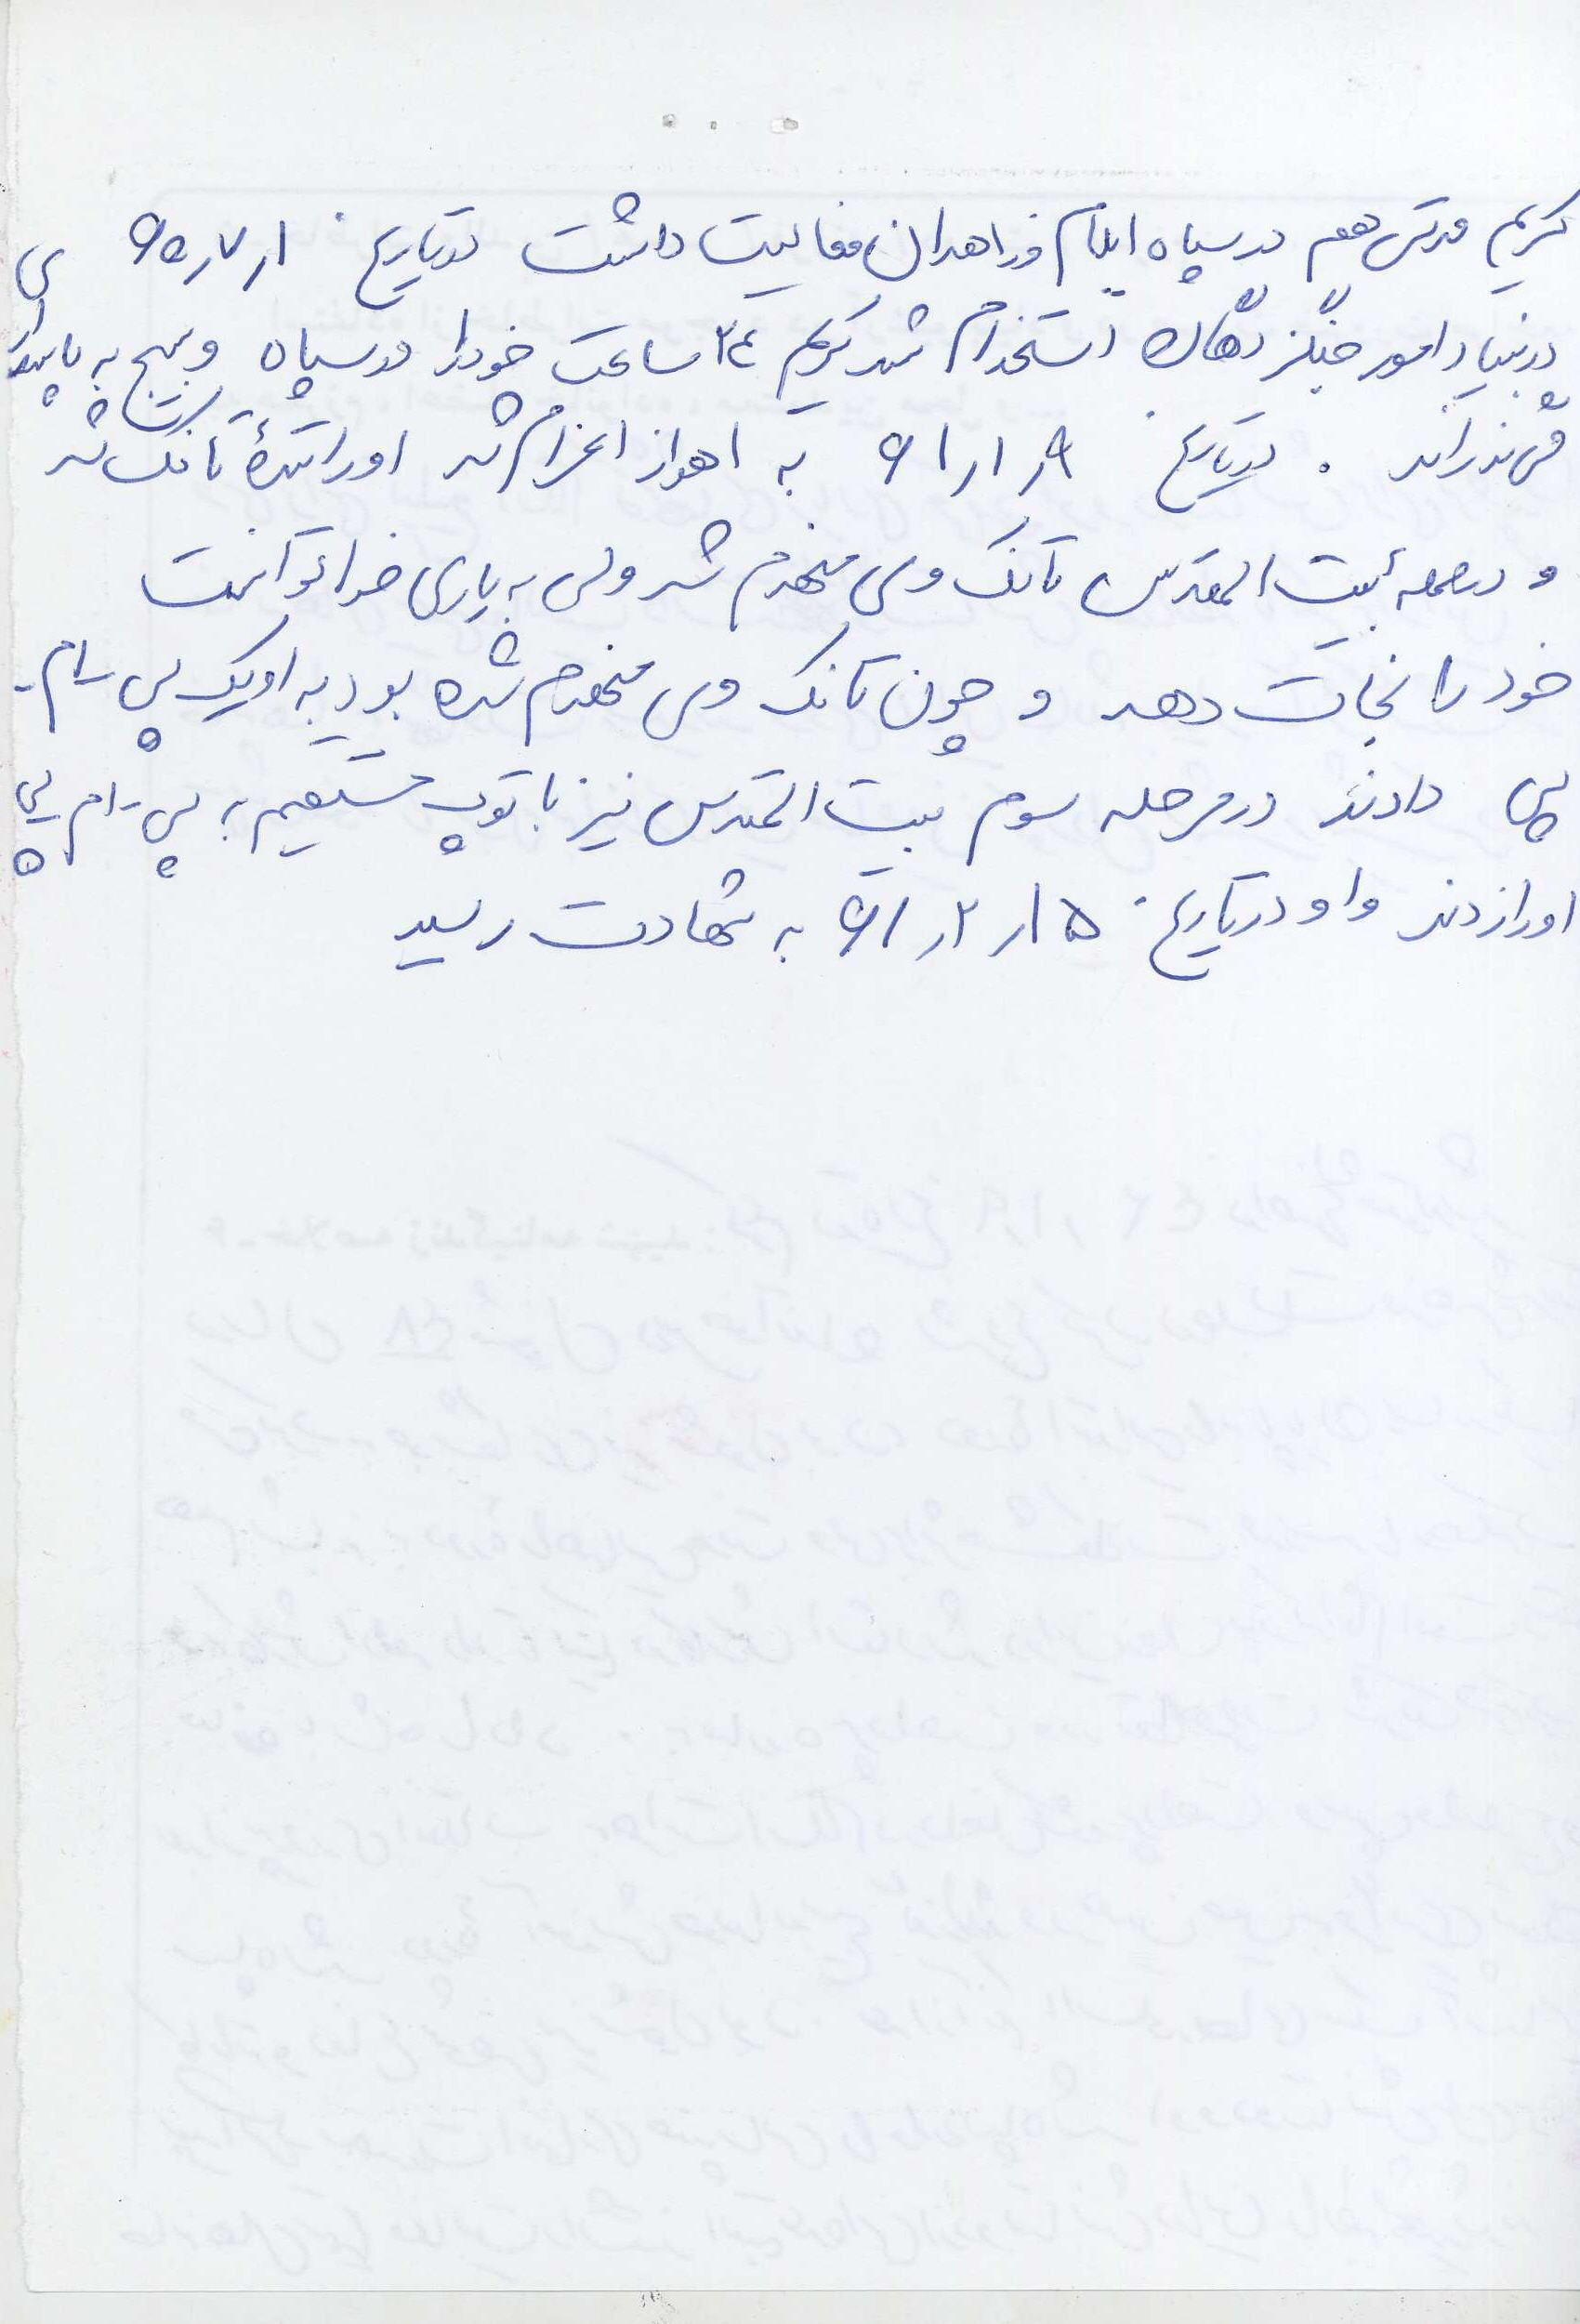 کریم مدتی هم در سپاه ایلام و زاهدان فعالیت داشت در تاریخ ۱ر۷ر۶۵ وی
در بنیاد امور جنگزدگان استخدام شد کریم ۲۴ ساعت خود را در سپاه و بسیج به پاسداری
می گذراند . در تاریخ ۹ر۱ر۶۱ به اهواز اعزام شد او رانندۀ تانک شد
و در حمله بیت المقدس تانک وی منهدم شد ولی به یاری خدا توانست
خود را نجات دهد و چون تانک وی منهدم شده بود به او یک پی - ام -
پی دادند در مرحله سوم بیت المقدس نیز با توپ مستقیم به پی - ام پی
او را زدند و او در تاریخ ۱۵ر۲ر۶۱ به شهادت رسید